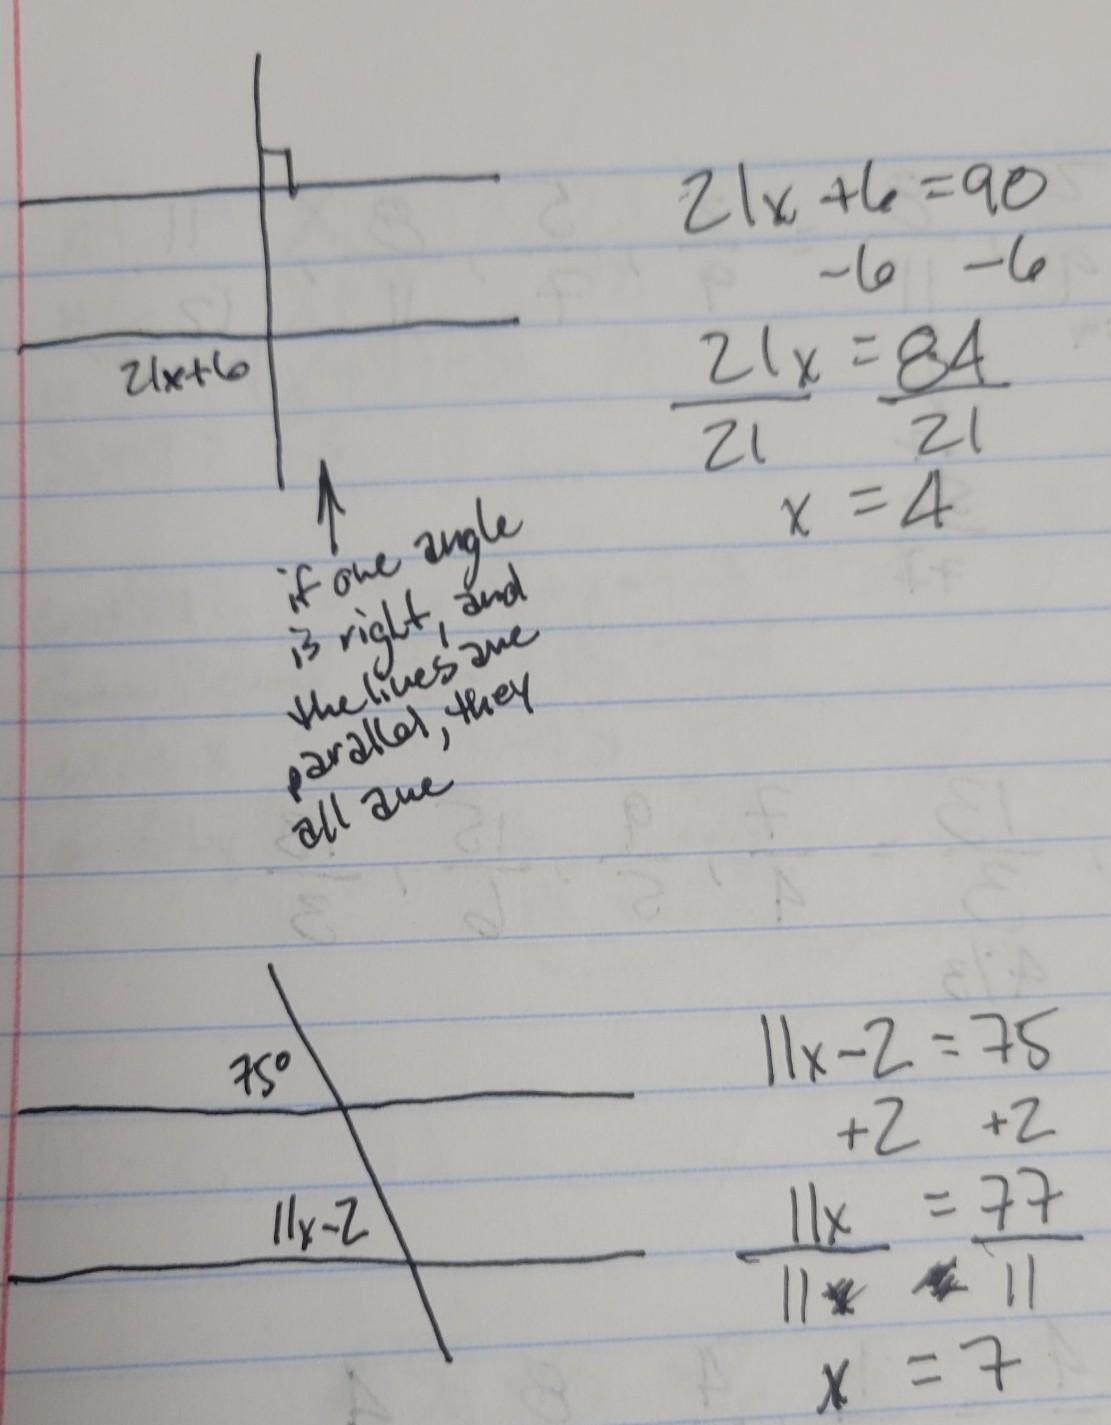 21x+6
21x+6=90
-6 -6
21x = 84
21 21
x = 4
if one angle
is right, and
the lines are
parallel, they
all are
75°
11x-2
11x-2=75
+2 +2
11x = 77
11 11
x = 7